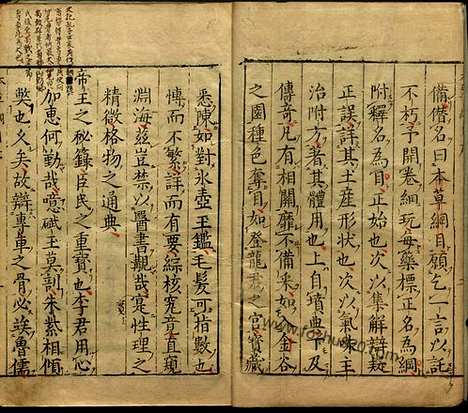 僭僭名曰本草綱目願乞一言以託
不朽予開卷細玩每藥標正名為綱
附釋名為目正始也次以集解辯疑
正誤詳其土產形狀也次以氣味主
治附方著其體用也上自墳典下及
傳奇凡有相關靡不備采如入金谷
之園種色奪目如登龍君之宮寶藏
悉陳如對氷壺玉鑑毛髮可指數也
博而不繁詳而有要綜核究竟直窺
淵海茲豈禁以醫書覯哉寔性理之
精微格物之通典
帝王之秘籙臣民之重寶也李君用心
加惠何勤哉噫碔玉莫剖朱紫相傾
弊也久矣故辯專車之骨必俟魯儒